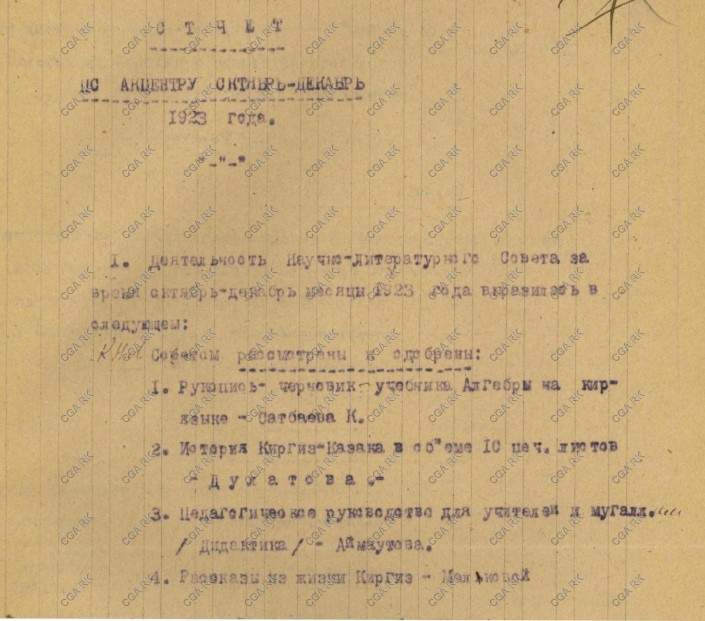 ОТЧЕТ
ПО АКЦЕНТРУ ОКТЯБРЬ-ДЕКАБРЬ
1923 года.
"-"-"
I. Деятельность Научно-Литературного Совета за
время октябрь-декабрь месяцы 1923 года выразилось в
следующем:
Советом рассмотрены и одобрены:
1. Рукопись- черновик - учебника Алгебры на кир-
языке - Сатбаева К.
2. История Киргиз-Казака в об"еме 10 печ. листов
- Дулатова.-
3. Педагогическое руководство для учителей и мугалл.
/ Дидактика / - Аймаутова.
4. Рассказы из жизни Киргиз -